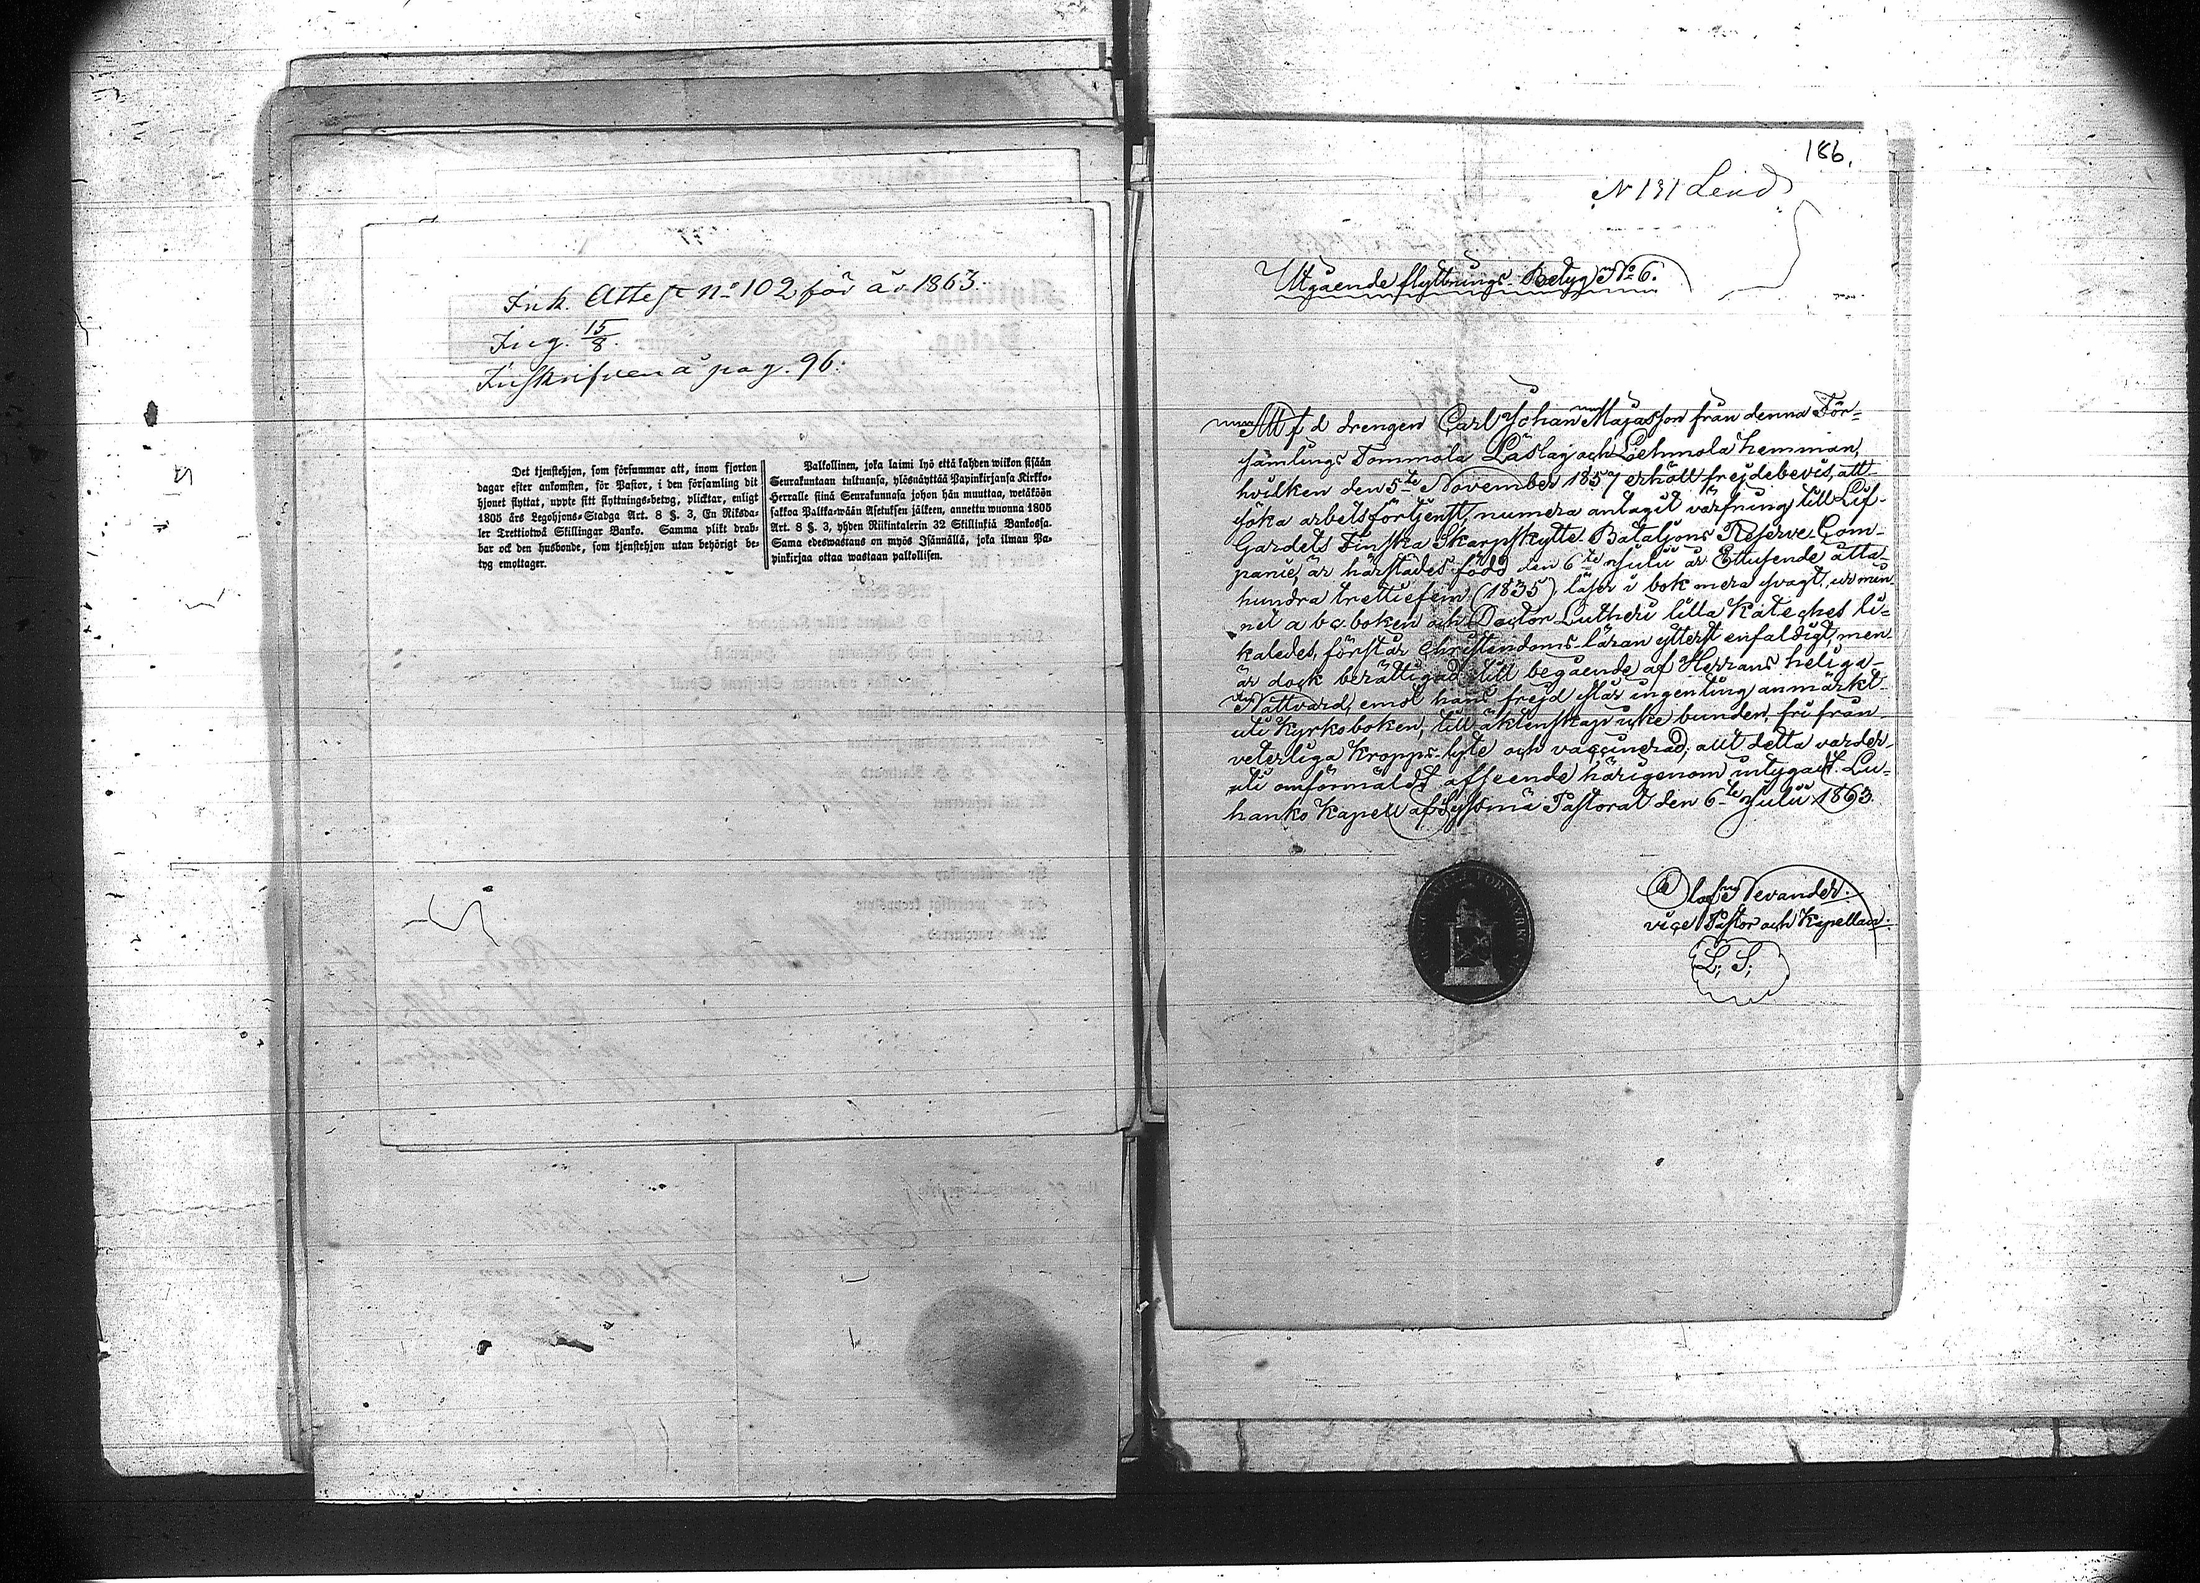 Ink. Attest No 102 för år 1863.
Ing. 15/8.
Inskrifven å pag. 96.
Det tjenstehjon, som försummar att, inom fjorton
dagar efter ankomsten, för Pastor, i den församling dit
hjonet flyttat, uppte sitt flyttnings-betyg, plicktar, enligt
1805 års Legohjons-Stadga Art. 8 §. 3, En Riksda-
ler Trettiotwå Skillingar Banko. Samma plikt drab-
bar ock den husbonde, som tjenstehjon utan behörigt be-
tyg emottager.
Palkollinen, joka laimi lyö että kahden wiikon sisään
Seurakuntaan tultuansa, ylösnäyttää Papinkirjansa Kirkko-
Herralle siinä Seurakunnasa johon hän muuttaa, wetäköön
sakkoa Palkka-wään Asetuksen jälkeen, annettu wuonna 1805
Art. 8 §. 3, yhden Riikintalerin 32 Skillinkiä Bankossa.
Sama edeswastaus on myös Isännällä, joka ilman Pa-
pinkirjaa ottaa wastaan palkollisen.
186.
N 131 Lend
Utgående flyttnings-Betyg No 6.
Att f d drengen Carl Johan Majasson från denna För-
samlings Tommola Låslag och Liehmola hemman,
hvilken den 5te November 1857 erhöll frejdebevis, att
söka arbetsförtjenst, numera antagit värfning till Lif-
Gardets Finska Skarpskytte-Bataljons Reserve-Com-
panie, är härstädes född den 6te Julii år Ettusende åtta-
hundra trettiofem (1835), läser i bok mera svagt, ur min-
net a b c boken och Doctor Lutheri lilla Kateches li-
kaledes, förstår Christendoms-läran ytterst enfaldigt, men
är dock berättigad till begående af Herrans heliga
Nattvard, emot hans frejd står ingenting anmärkt
uti Kyrkoboken, till äktenskap icke bunden, fri från
veterliga Kropps-lyte och vaccinerad; allt detta varder
uti omförmäldt afseende härigenom intygadt. Lu-
hanko Kapell af Sysmä Pastorat den 6te Julii 1863.
Olof Nevander.
vice Pastor och Kapellan.
L. S.